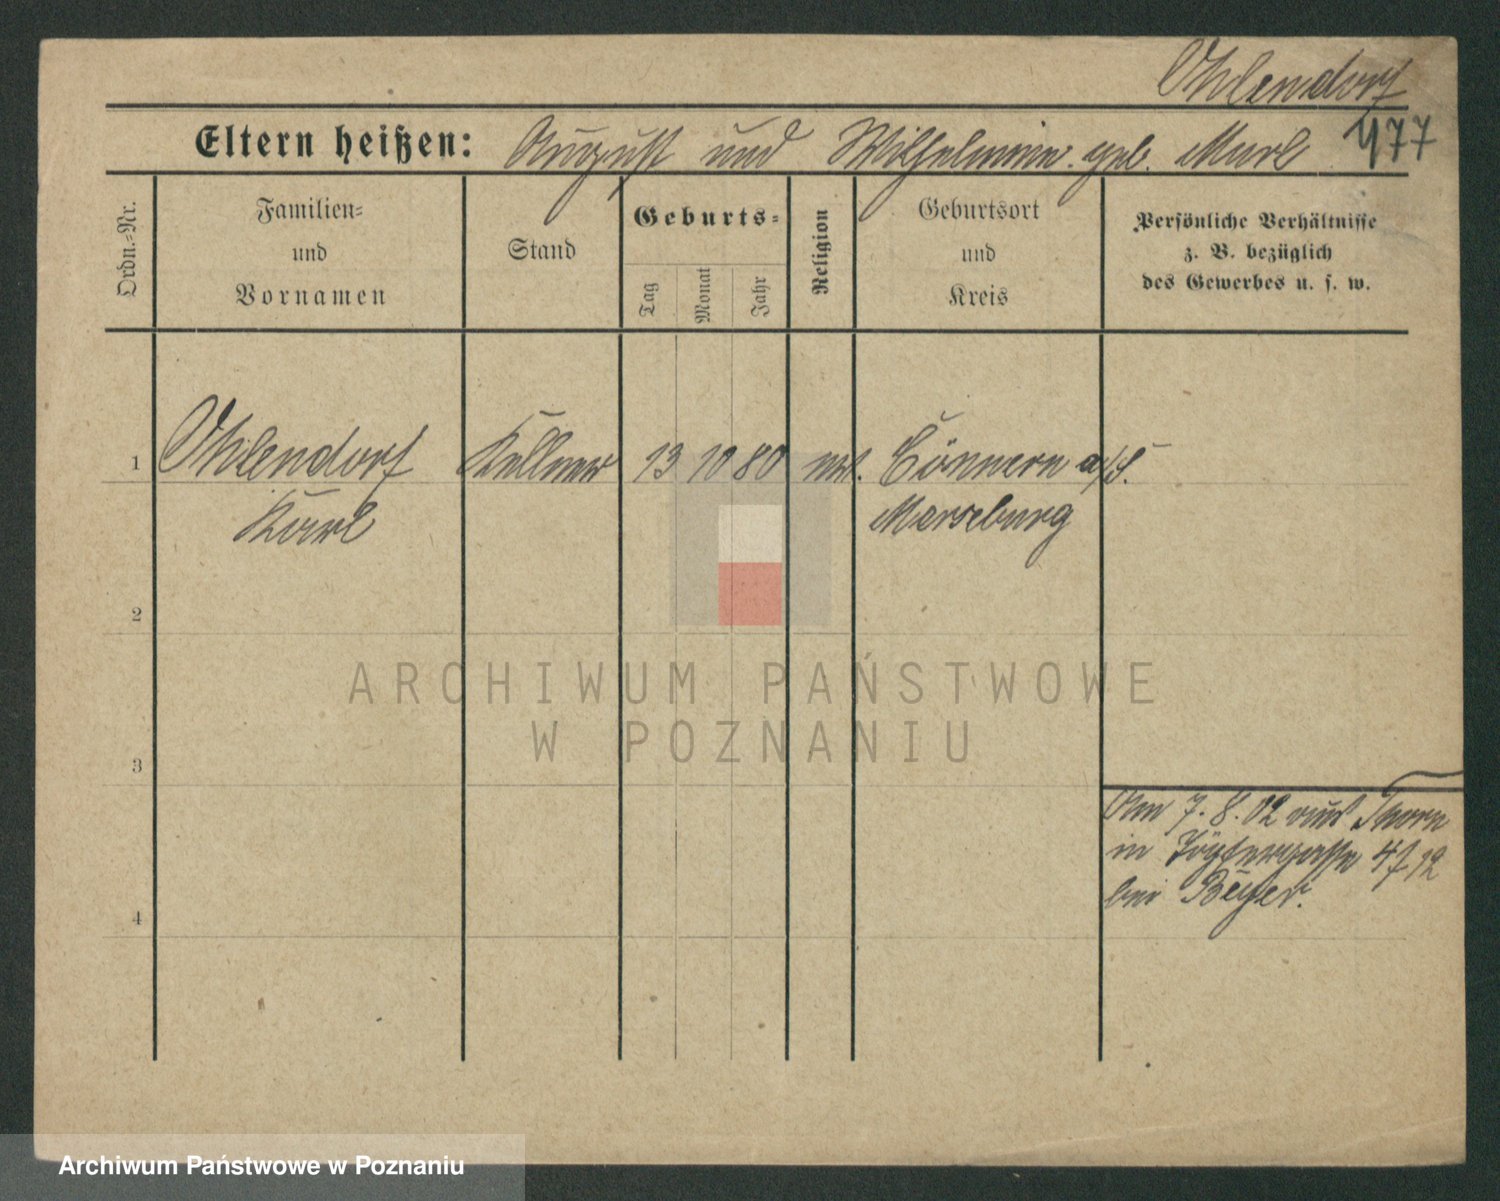 Uhlendorf
477
Eltern heißen: August und Wilhelmine geb. Murl
Ordn.-Nr.
Familien-
und
Vornamen
Stand
Geburts-
Tag
Monat
Jahr
Religion
Geburtsort
und
Kreis
Persönliche Verhältnisse
z. B. bezüglich
des Gewerbes u. s. w.
1 Uhlendorf Kellner 13 10 80 ev. Cönnern a/S.
Karl Merseburg
2
3
4
Am 7.8.02 aus Thorn
in Töpfergasse
bei Beyer.
ARCHIWUM PAŃSTWOWE
W POZNANIU
Archiwum Państwowe w Poznaniu